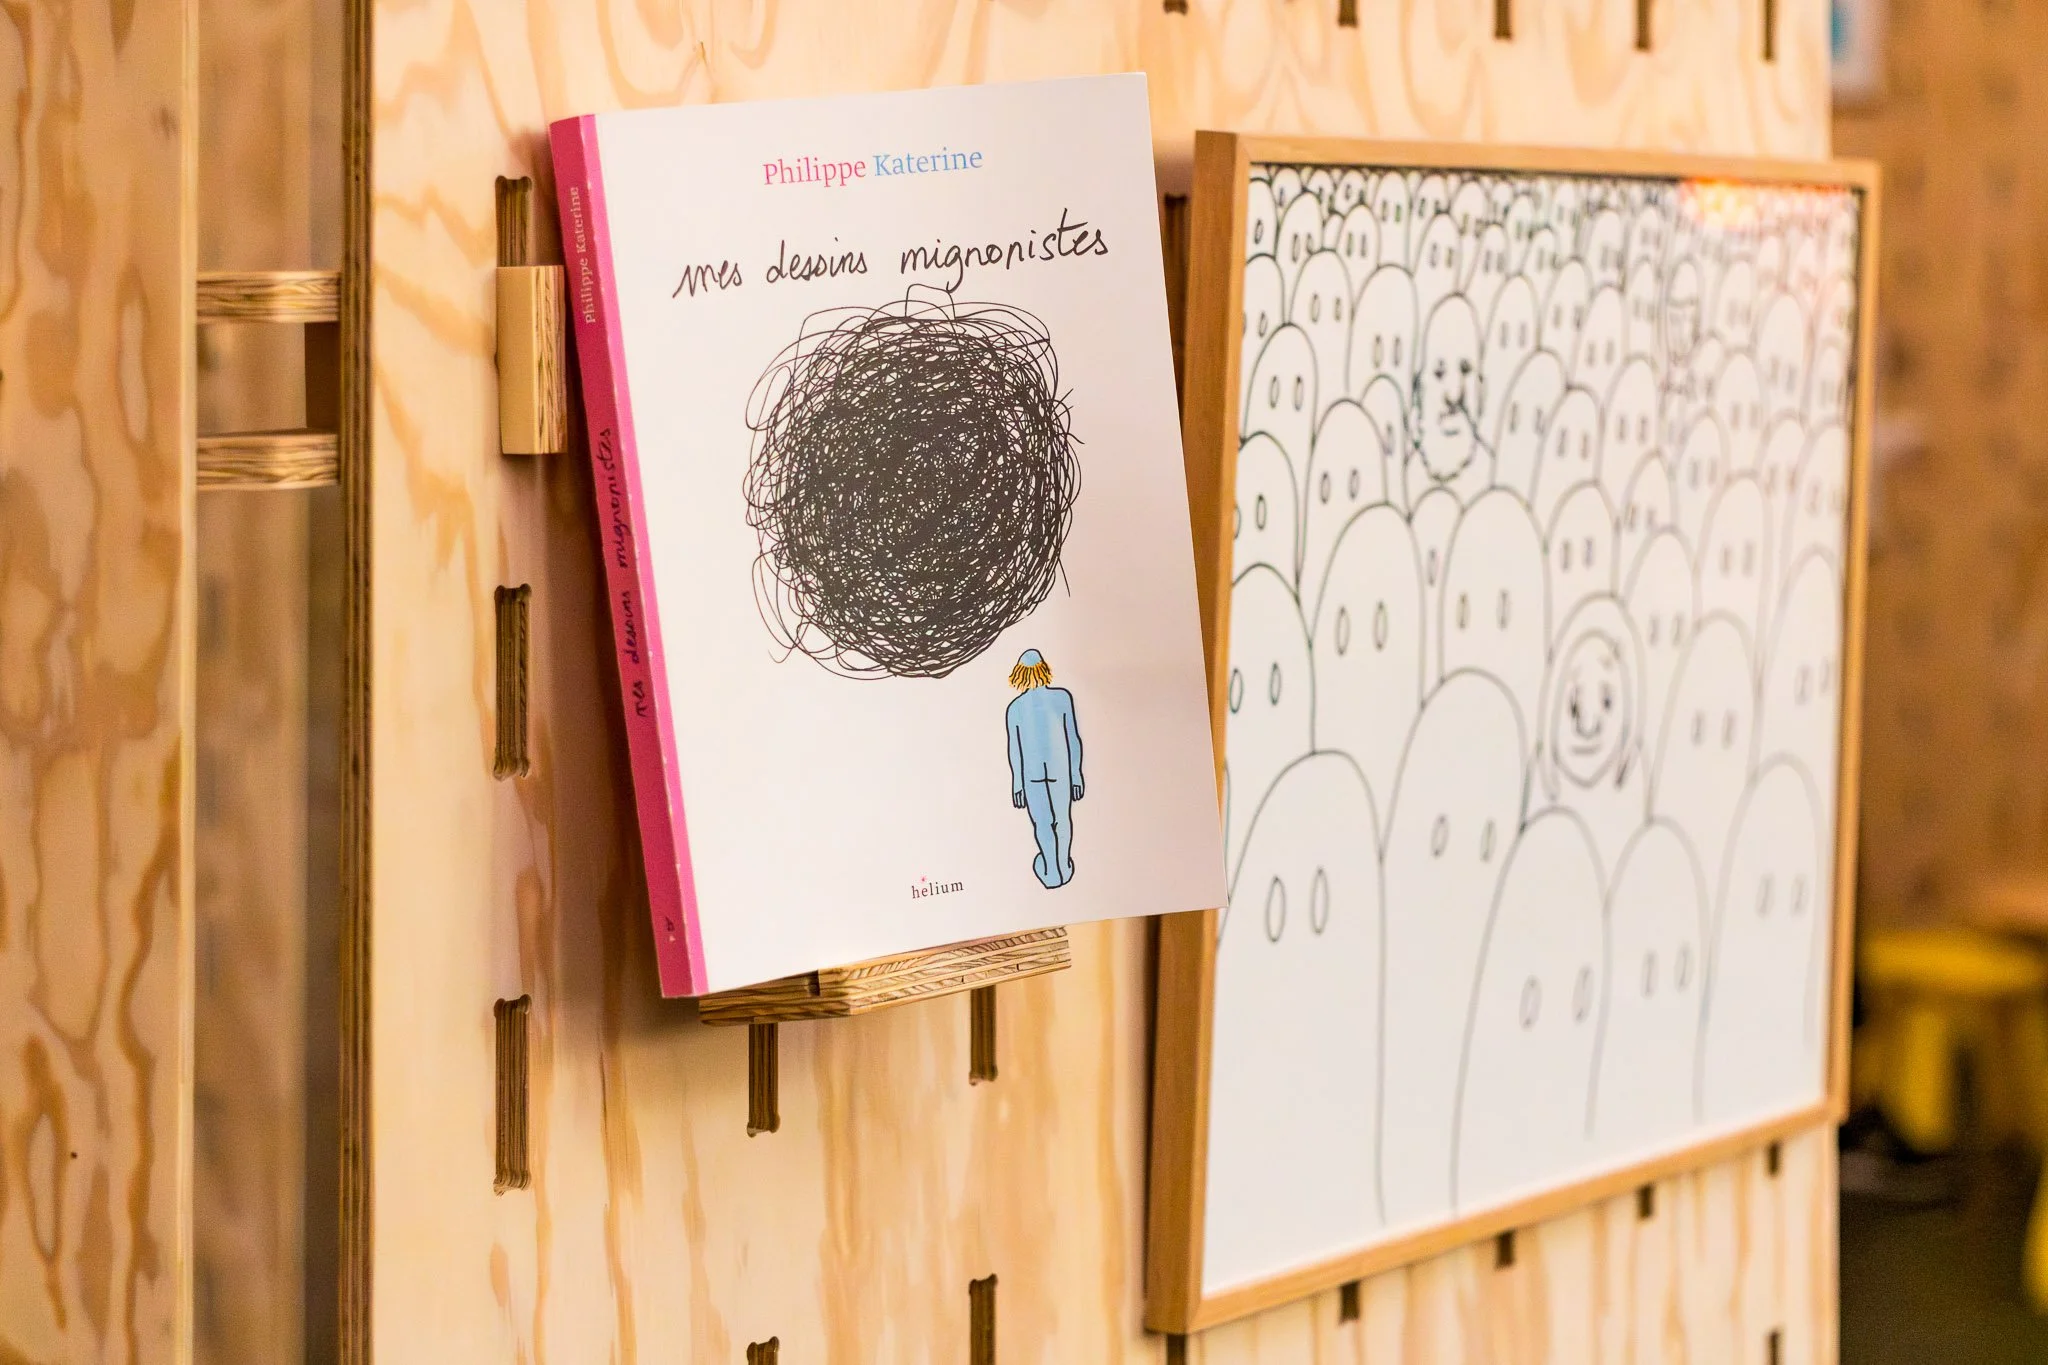 Philippe Katerine
mes dessins mignonistes
helium
Philippe Katerine
mes dessins mignonistes